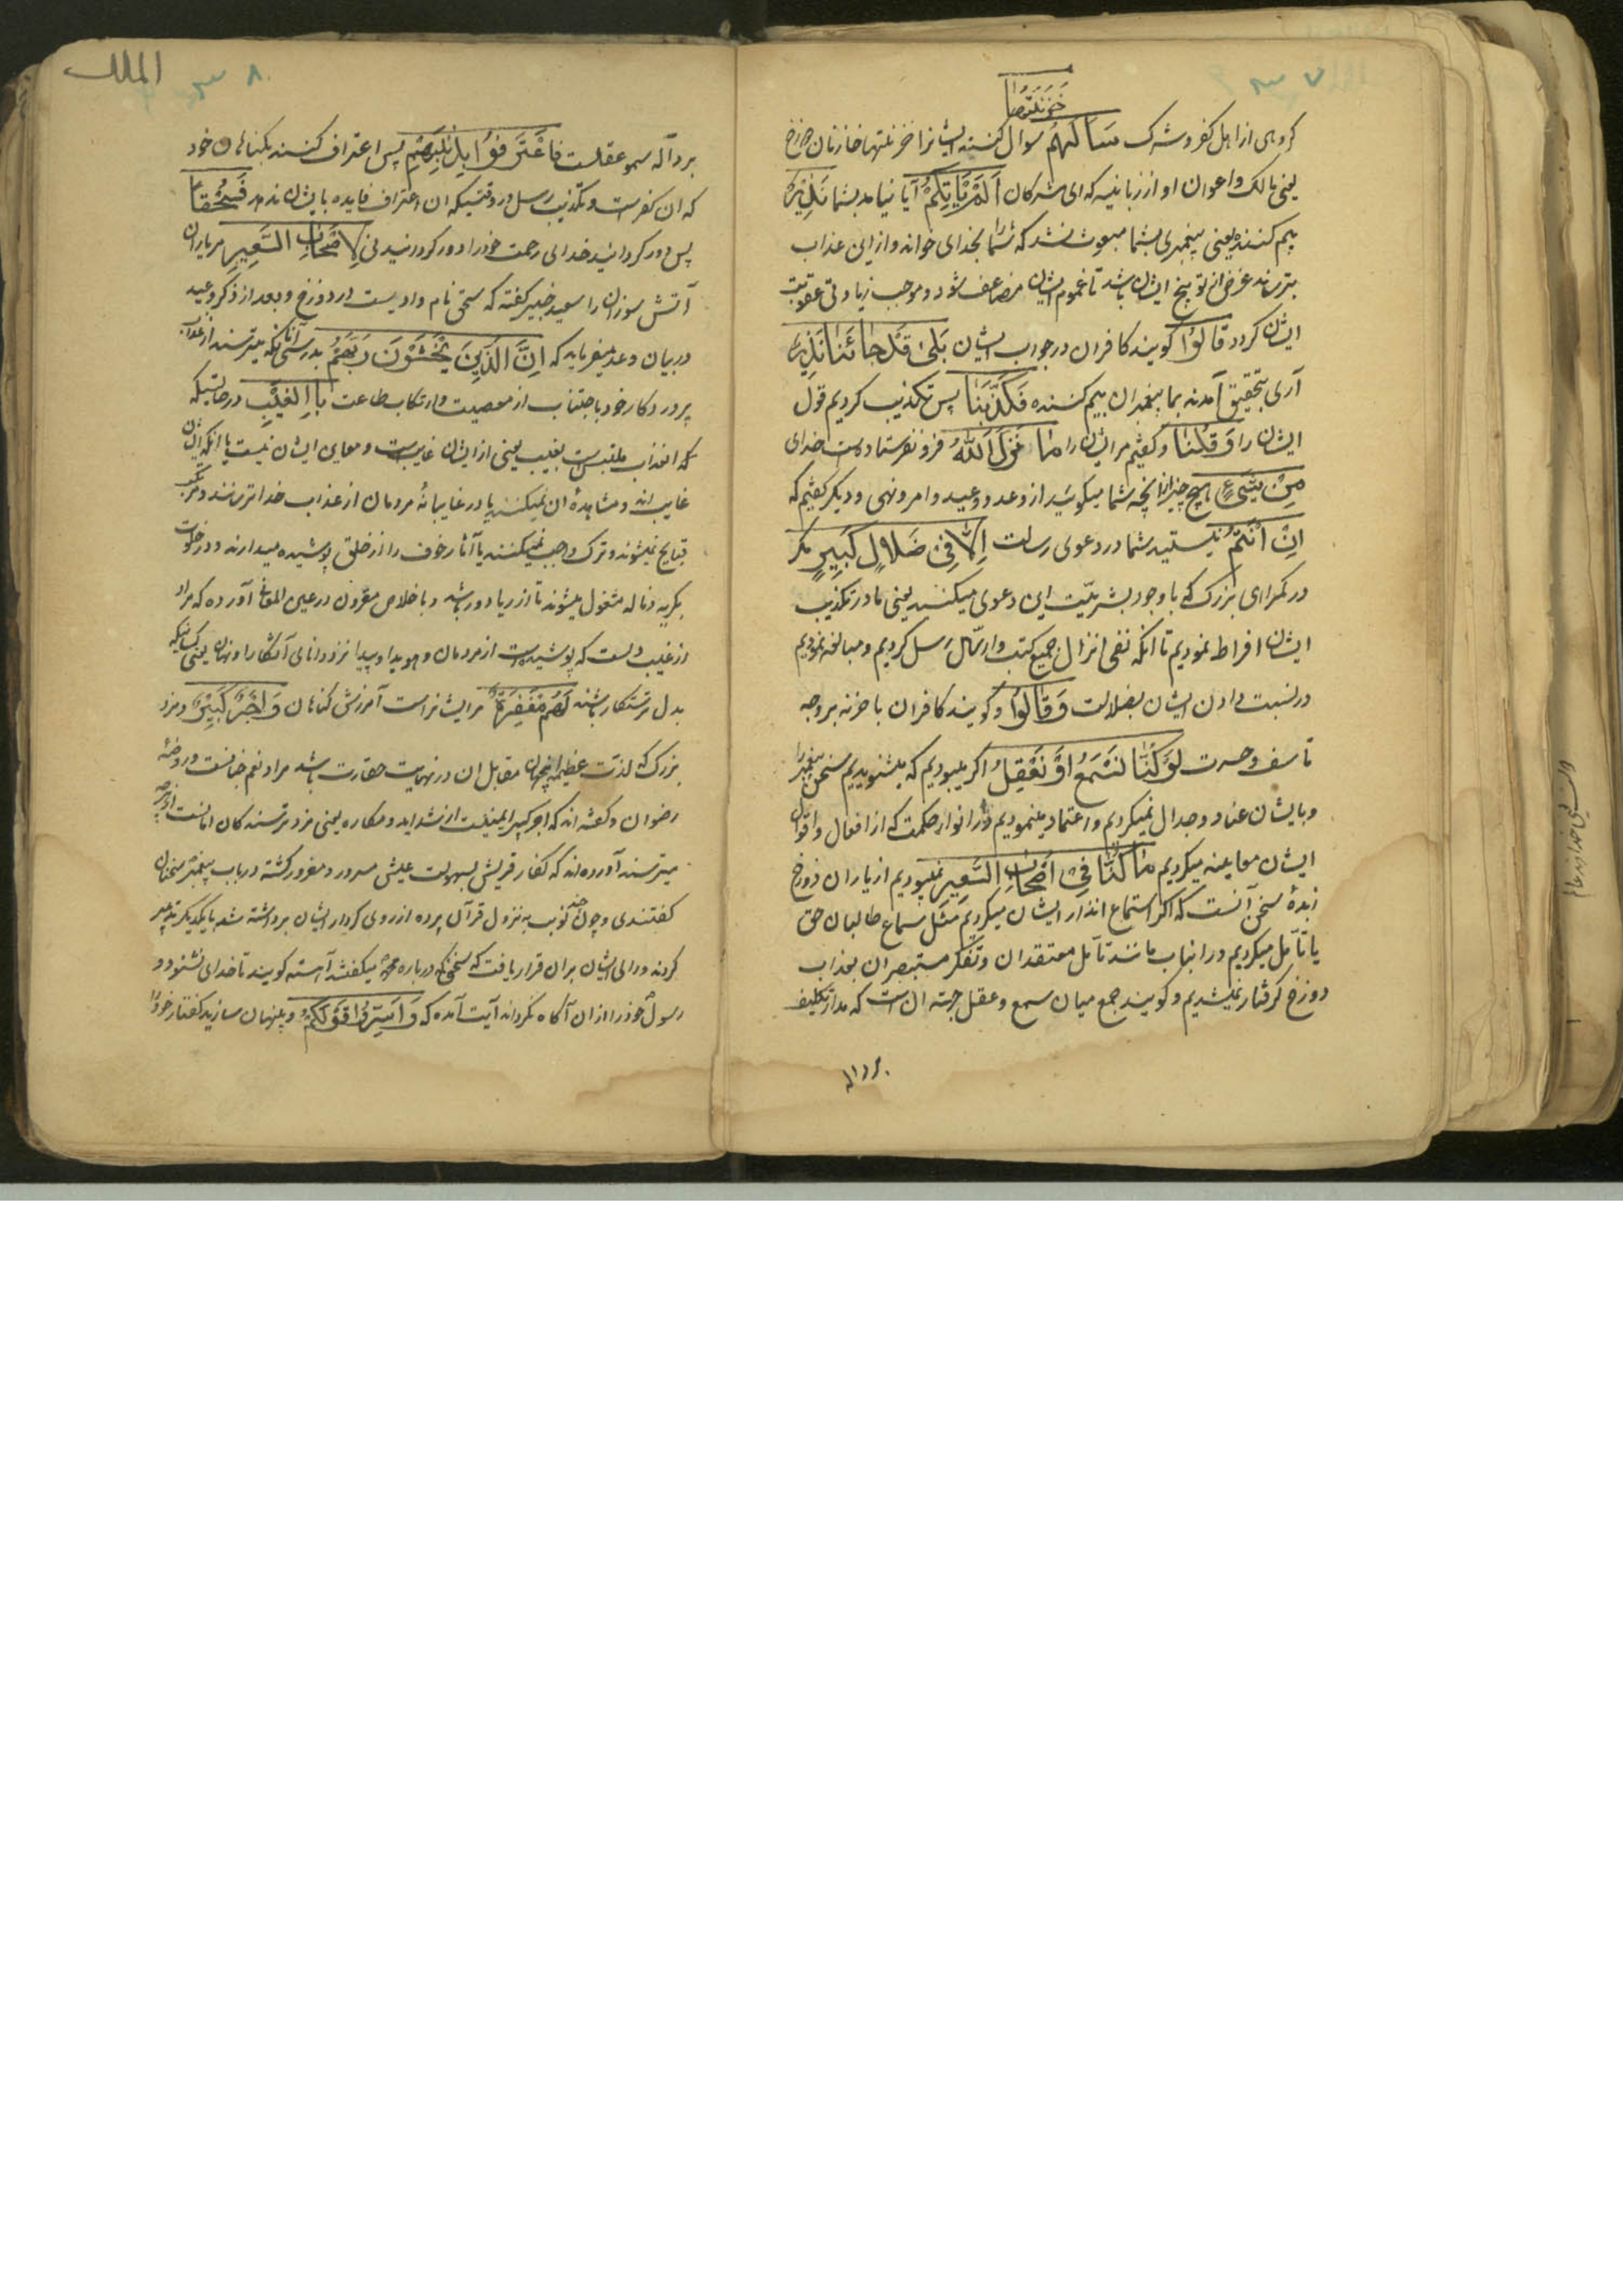 ۷ س
خَزَنَتُهَا
کروهی از اهل کفر و شرک سَاَلَهُم سوال کنند ایشانرا خزنتها خازنان دوزخ
یعنی مالک و اعوان او از زبانیه که ای مشرکان اَلَمْ یَأتِکُمْ آیا نیامد بشما نَذِیرٌ
بیم کننده یعنی پیغمبری بشما مبعوث نشد که شما را بخدای خواند و از این عذاب
بترساند غرض از توبیخ ایشان باشد تا غموم ایشان مضاعف شود و موجب زیادتی عقوبت
ایشان کردد قالُوا کویند کافران در جواب ایشان بَلیٰ قَدْ جَائَنَا نَذِیرٌ
آری بتحقیق آمدند بما پیغمبران بیم کننده فَکَذَّبْنَا پس تکذیب کردیم قول
ایشان را وَ قُلْنَا و کفتیم مر ایشان را مٰا نَزَّلَ اللّٰهُ فرو نفرستاده است خدای
مِنْ شَیْءٍ هیچ چیز از انچه شما میکوئید از وعد و وعید و امر و نهی و دیکر کفتیم که
اِنْ اَنْتُمْ نیستید شما در دعوی رسالت اِلاّٰ فِی ضَلاٰلٍ کَبِیرٍ مکر
در کمراهی بزرک که با وجود بشریّت این دعوی میکنید یعنی ما در تکذیب
ایشان افراط نمودیم تا انکه نفی انزال جمیع کتب و ارسال رسل کردیم و مبالغه نمودیم
در نسبت دادن ایشان بضلالت وَ قالُوا و کویند کافران با خزنه بر وجه
تاسف و حسرت لَوْ کُنّٰا نَسْمَعُ اَوْ نَعْقِلُ اکر میبودیم که میشنودیم سخن پیغمبرانرا
و با ایشان عناد و جدال نمیکردیم و اعتماد مینمودیم و از انوار حکمت که از افعال و اقوال
ایشان معاینه میکردیم مٰا کُنّٰا فِی اَصْحٰابِ السَّعِیرِ نمیبودیم از یاران دوزخ
زبدهٔ سخن آنست که اکر استماع انذار ایشان میکردیم مثل سماع طالبان حق
یا تأمل میکردیم در انباب مانند تأمل معتقدان و تفکر مستبصران بعذاب
دوزخ کرفتار نمیشدیم و کویند جمع میان سمع و عقل جهة ان است که مدار تکلیف
بر داله
الملک
۸ س
بر دالّه سمع و عقلست فَاعْتَرَفُوا بِذَنْبِهِم پس اعتراف کنند بکناهان خود
که ان کفرست و تکذیب رسل در وقتیکه ان اعتراف فایده بایشان ندهد فَسُحْقاً
پس دور کردانید خدای رحمت خود را دور کردانیدنی لِاَصْحٰابِ السَّعِیرِ مر یاران
آتش سوزان را سعید جبیر کفته که سحق نام وادیست در دوزخ و بعد از ذکر وعید
در بیان وعد میفرماید که اِنَّ الَّذِینَ یَخْشَوْنَ رَبَّهُمْ بدرستی آنانکه میترسند از عذاب
پروردکار خود باجتناب از معصیت و ارتکاب طاعت بِالْغَیْبِ در حالتیکه
که انعذاب ملتبس است بغیب یعنی از ایشان غایبست و معاین ایشان نیست یا انکه ایشان
غایب اند و مشاهدهٔ ان نمیکنند یا در غایبانهٔ مردمان از عذاب خدا ترسند و مرتکب
قبایح نمیشوند و ترک واجب نمیکنند یا آثار خوف را از خلق پوشیده میدارند و در خلوت
بکریه و ناله مشغول میشوند تا از ریا دور باشد و باخلاص مقرون در عین المعانی آورده که مراد
از غیب دلست که پوشیده است از مردمان و هویدا و پیدا نزد دانای آشکارا و نهان یعنی کسانیکه
بدل ترستکار باشند لَهُم مَغْفِرَةٌ مر ایشانراست آمرزش کناهان وَ اَجْرٌ کَبِیرٌ و مزد
بزرک که لذت عظیمهٔ اینجهان مقابل ان در نهایت حقارت باشد مراد نعم جنانست و روضهٔ
رضوان و کفته اند که اجر کبیر ایمنیست از شداید و مکاره یعنی مزد ترسندکان امانست از هرچه
میترسند آورده اند که کفار قریش بسهولت عیش مسرور و مغرور کشته در باب پیغمبر سخنان
کفتندی و چون نوبت به نزول قرآن پرده از روی کردار ایشان برداشته شد با یکدیکر تدبیر
کردند و رای ایشان بران قرار یافت که سخنی که درباره محمد میکفتند آهسته کویند تا خدای نشنود و
رسول خود را از ان آکاه نکرداند آیت آمد که وَ اَسِرُّوا قَوْلَکُمْ و پنهان سازید کفتار خود را